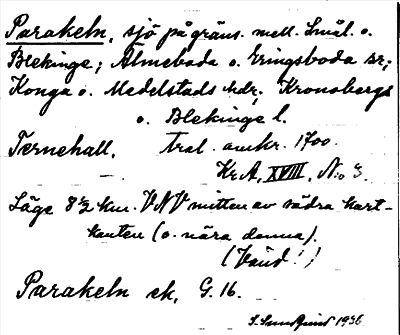 Parakeln, sjö på gräns. mell. Smål. o.
Blekinge; Älmeboda o. Eringsboda sr;
Konga o. Medelstads hdr; Kronobergs
o. Blekinge l.
Ternehall. Tral. omkr. 1700.
Kr.A. XVIII. N:o 3.
Läge 8 ½ km. VNV mitten av södra kart-
kanten (o. nära denna).
Parakeln ek. G. 16.
J. Sundquist 1936.